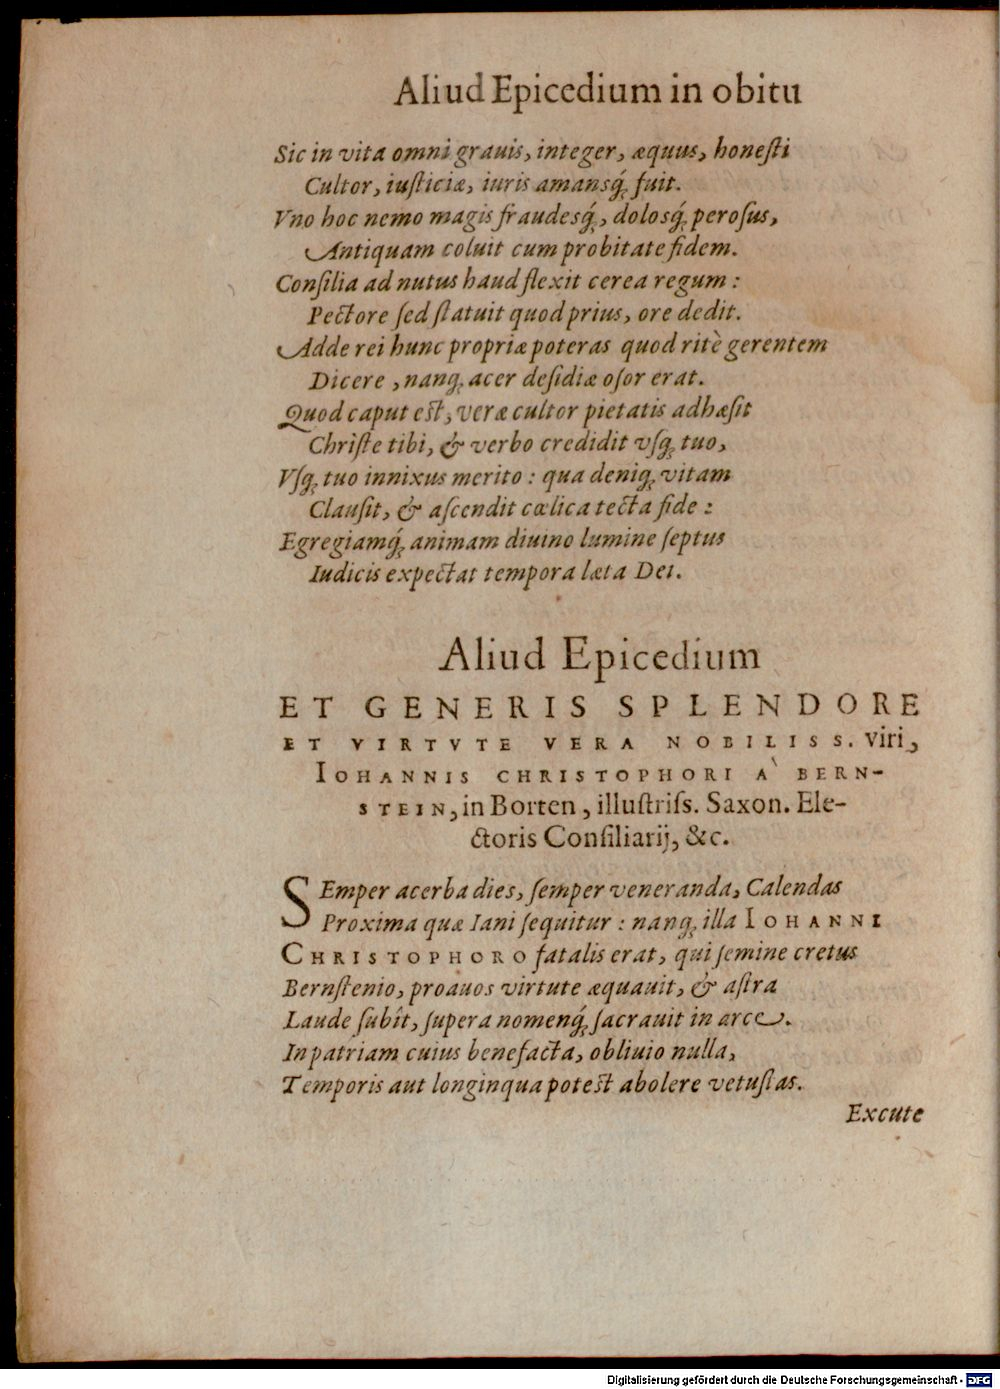 Aliud Epicedium in obitu
Sic in vita omni grauis, integer, æquus, honeſti
Cultor, iuſticiæ, iuris amansq́; fuit.
Vno hoc nemo magis fraudesq́;, dolosq́; peroſus,
Antiquam coluit cum probitate fidem.
Conſilia ad nutus haud flexit cerea regum:
Pectore ſed ſtatuit quod prius, ore dedit.
Adde rei hunc propriæ poteras quod ritè gerentem
Dicere, nanq; acer deſidiæ oſor erat.
Quod caput eſt, veræ cultor pietatis adhæſit
Chriſte tibi, & verbo credidit vſq; tuo,
Vſq; tuo innixus merito: qua deniq; vitam
Clauſit, & aſcendit cœlica tecta fide:
Egregiamq́; animam diuino lumine ſeptus
Iudicis expectat tempora læta Dei.
Aliud Epicedium
ET GENERIS SPLENDORE
ET VIRTVTE VERA NOBILISS. viri,
IOHANNIS CHRISTOPHORI À BERN-
STEIN, in Borten, illuſtriſs. Saxon. Ele-
ctoris Conſiliarij, &c.
SEmper acerba dies, ſemper veneranda, Calendas
Proxima quæ Iani ſequitur: nanq; illa IOHANNI
CHRISTOPHORO fatalis erat, qui ſemine cretus
Bernſtenio, proauos virtute æquauit, & aſtra
Laude ſubît, ſupera nomenq́; ſacrauit in arce.
In patriam cuius benefacta, obliuio nulla,
Temporis aut longinqua poteſt abolere vetuſtas.
Excute
Digitalisierung gefördert durch die Deutsche Forschungsgemeinschaft - DFG